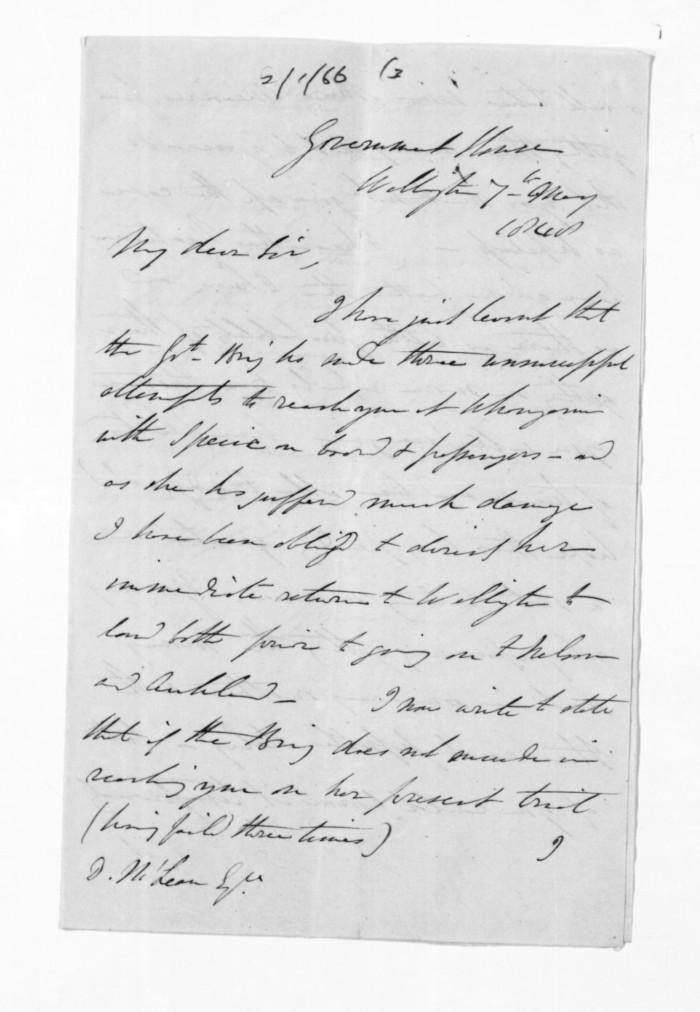 2/1/66 (3
Government House
Wellington 7th May
1848
My dear Sir,
I have just learnt that
the Govt Brig has made three unsuccessful
attempts to reach you at Whanganui
with Specie on board & passengers - and
as she has suffered much damage
I have been obliged to direct her
immediate return to Wellington to
land both prior to going on to Nelson
and Auckland - I now write to state
that if the Brig does not succeed in
reaching you on her present trial
(having failed three times) I
D. McLean Esqre